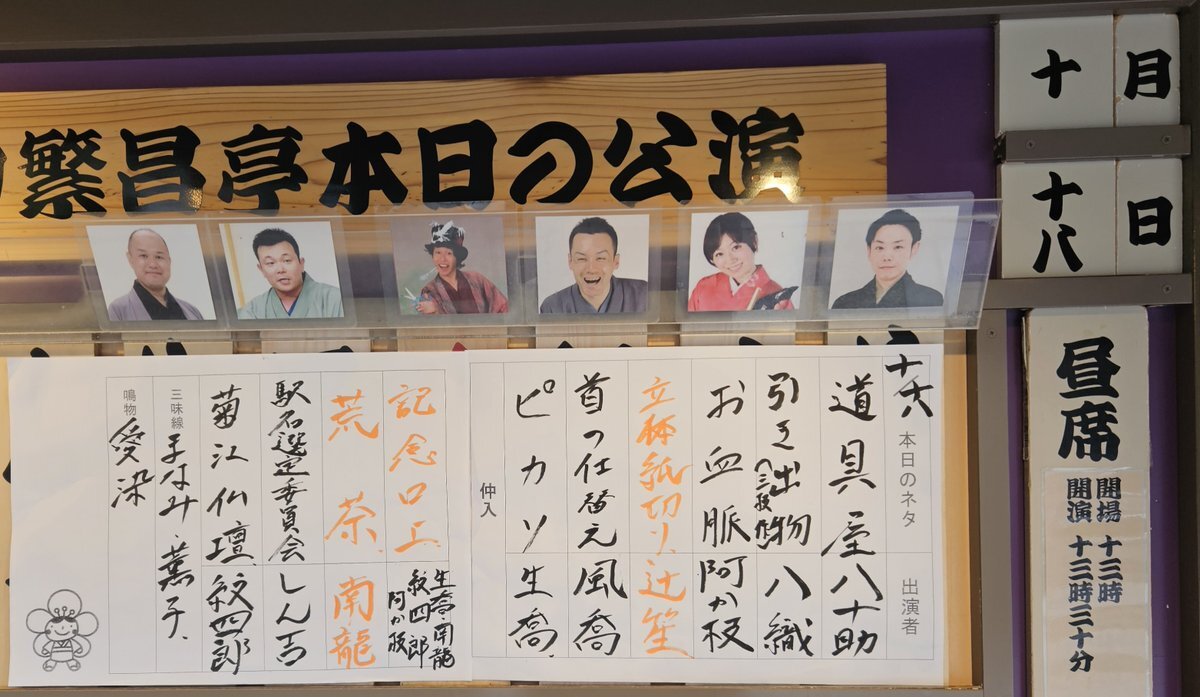 繁昌亭本日の公演
十月
十八日
昼席
開場 十三時
開演 十三時三十分
十八
本日のネタ 出演者
道具屋 八十助
引き出物 (八三技作) 八織
お血脈 阿か枝
立体紙切り 辻笙
首の仕替え 風喬
ピカソ 生喬
仲入
記念口上 生喬・南龍 紋四郎 阿か枝
荒茶 南龍
駅名選定委員会 しん吉
菊江仏壇 紋四郎
三味線 まなみ・薫子
鳴物 愛染